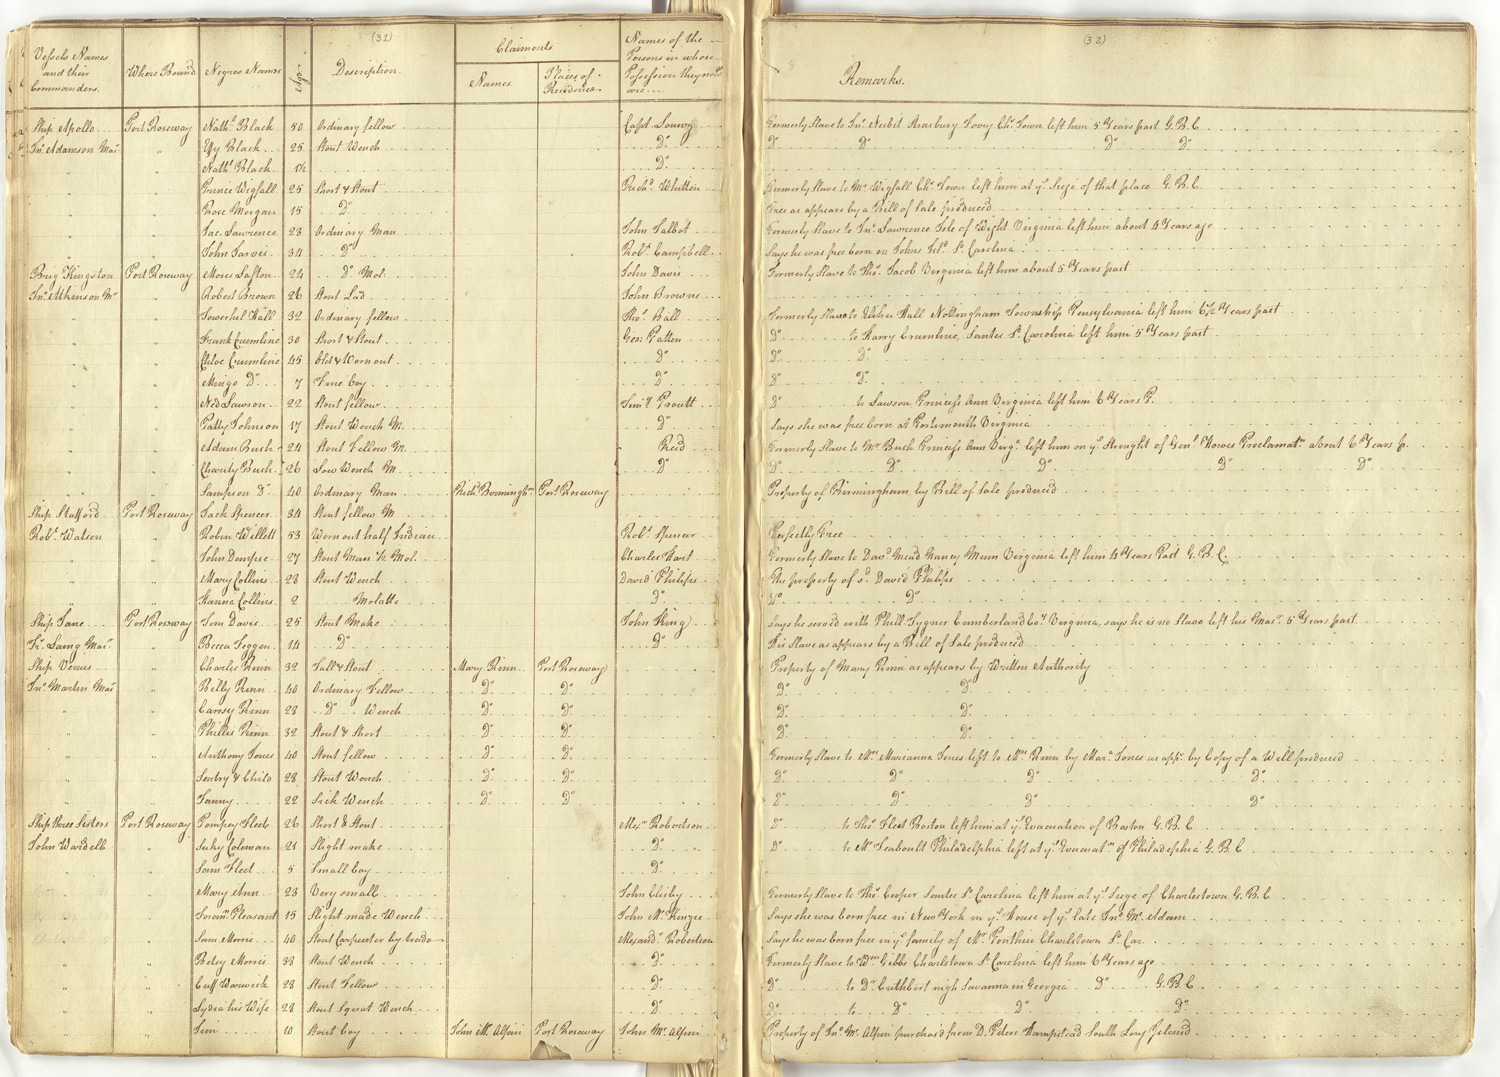 (31)
Vessels Names and their Commanders.
Where Bound
Negroes Names
Age
Description.
Claimants
Names.
Places of Residence
Names of the Persons in whose Possession they now are
(32)
Remarks.
Ship Apollo Port Roseway Nathl. Black 50 Ordinary fellow Capt. Formerly Slave to Jno. Nesbit Chs. Town left him 5 Years past G.B.C
Jno. Adamson Mar. " Black 25 Stout Wench Do. Do. Do. Do. Do.
" " Nathl. Black 1½ Do.
" " Prince Wigfall 25 Short & Stout Richd. Whitten Formerly Slave to Mr. Wigfall Chs. Town left him at ye. Siege of that place G.B.C
" " Rose Morgan 15 Do. Free as appears by a Bill of Sale produced
" " Jac. Lawrence 23 Ordinary Man John Talbot Formerly Slave to Jno. Lawrence Isle of Wight Virginia left him about 4 Years ago
" " John Jarvis 34 Do. Robt. Campbell Says he was free born on Johns Ild. So. Carolina
Brig Kingston Port Roseway Moses 24 Do. Mol. John Davis Formerly Slave to Thos. Jacob Virginia left him about 5 Years past
Jno. Atkinson Mr. " Robert Brown 26 Stout Lad John Browne
" " Hall 32 Ordinary fellow Thos. Ball Formerly Slave to Elihu Hall Nottingham Township Pensylvania left him 6½ Years past
" " Frank Crumline 30 Short & Stout Geo. Patten Do. to Harry Crumline, Santee So. Carolina left him 5 Years past
" " Chloe Crumline 45 Old & Worn out Do. Do. Do.
" " Mingo Do. 7 Fine boy Do. Do. Do.
" " Ned Lawson 22 Stout fellow Proutt Do. to Lawson Princess Ann Virginia left him 6 Years P.
" " Patty Johnson 17 Stout Wench M. Do. Says she was free born at Portsmouth Virginia
" " Adam Bush 24 Stout Fellow M. Reid Formerly Slave to Mr. Bush Princess Ann Virga. left him on ye. Strenght of Genl. Howes Proclamatn. about 6 Years p.
" " Charity Bush 26 Low Wench M. Do. Do. Do. Do. Do. Do.
" " Sampson Do. 40 Ordinary Man Richd. Port Roseway Property of Birmingham, by Bill of Sale produced
Ship Stafford Port Roseway Jack Spencer 34 Stout fellow M
Robt. Watson " Robin Willett 53 Worn out half Indian Robt. Spencer Perfectly Free
" " John Dempse 27 Stout Man ½ Mol. Charles Hart Formerly Slave to Davd. Mead Nancy Virginia left him 4 Years Past G.B.C.
" " Mary Collins 23 Stout Wench David Philips The property of sd. David Philips
" " Hanna Collins 2 Molatto Do. Do. Do.
Ship Jane Port Roseway Tom Davis 25 Stout Make John King Says he served with Phill Cumberland Coy. Virginia, says he is no Slave left his Masr. 5 Years past
Laing Mar. " Becca 14 Do. Do. His Slave as appears by a Bill of Sale produced
Ship Venus " Charles Rinn 32 Tall & Stout Mary Rinn Port Roseway Property of Mary Rinn as appears by Written Authority
Jno. Martin Mar. " Billy Rinn 40 Ordinary Fellow Do. Do. Do. Do.
" " Rinn 28 Do. Wench Do. Do. Do. Do.
" " Phillis Rinn 32 Stout & Short Do. Do. Do. Do.
" " Anthony Jones 40 Stout fellow Do. Do. Formerly Slave to Mrs. Marianna Jones left to Mrs. Rinn by Mara. Jones as appr. by Copy of a Will produced
" " & Child 28 Stout Wench Do. Do. Do. Do. Do. Do.
" " 22 Sick Wench Do. Do. Do. Do. Do. Do.
Ship three Sisters Port Roseway Pompey Fleet 26 Short & Stout Alexr. Robertson Do. to Thos. Fleet Boston left him at ye. Evacuation of Boston G.B.C
John Wardell " Suky Coleman 21 Slight make Do. Do. to Mr. Philadelphia left at ye. Evacuatn. of Philadelphia G.B.C
" " Sam Fleet 5 Small boy Do.
" " Mary Ann 23 Very small John Formerly Slave to Thos. Cooper Santee So. Carolina left him at ye. Siege of Charlestown G.B.C
" " Pleasant 15 Slight made Wench John Mc.Kinzie Says she was born free in New York in ye. House of ye. late Jno. Mc. Adam
" " Sam Morris 40 Stout Carpenter by trade Alexandr. Robertson Says he was born free in ye. family of Mr. Ponthieu Charlstown So. Car.
" " Betsy Morris 38 Stout Wench Do. Formerly Slave to Wm. Gibbs Charlstown So. Carolina left him 6 Years ago
" " Cuff Warwick 28 Stout Fellow Do. Do. to Dr. Cuthbert nigh Savanna in Georgia Do. G.B.C
" " Lydia his Wife 28 Stout Squat Wench Do. Do. to Do. Do. Do.
" " Sim 10 Stout boy John Mc. Alpin Port Roseway John Mc. Alpin Property of Jno. Mc. Alpin purchas'd from D. Peters Hampstead South Long Island